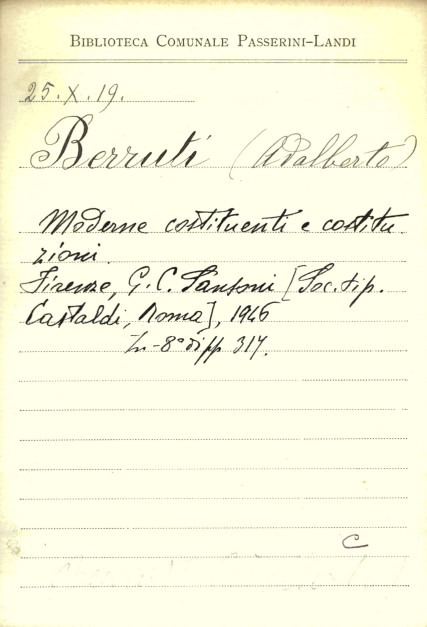 BIBLIOTECA COMUNALE PASSERINI-LANDI
25.X.19.
Berruti (Adalberto)
Moderne costituenti e costitu
zioni.
Firenze, G. C. Sansoni [Soc. tip.
Castaldi, Roma], 1946
In-8° di pp 317.
C